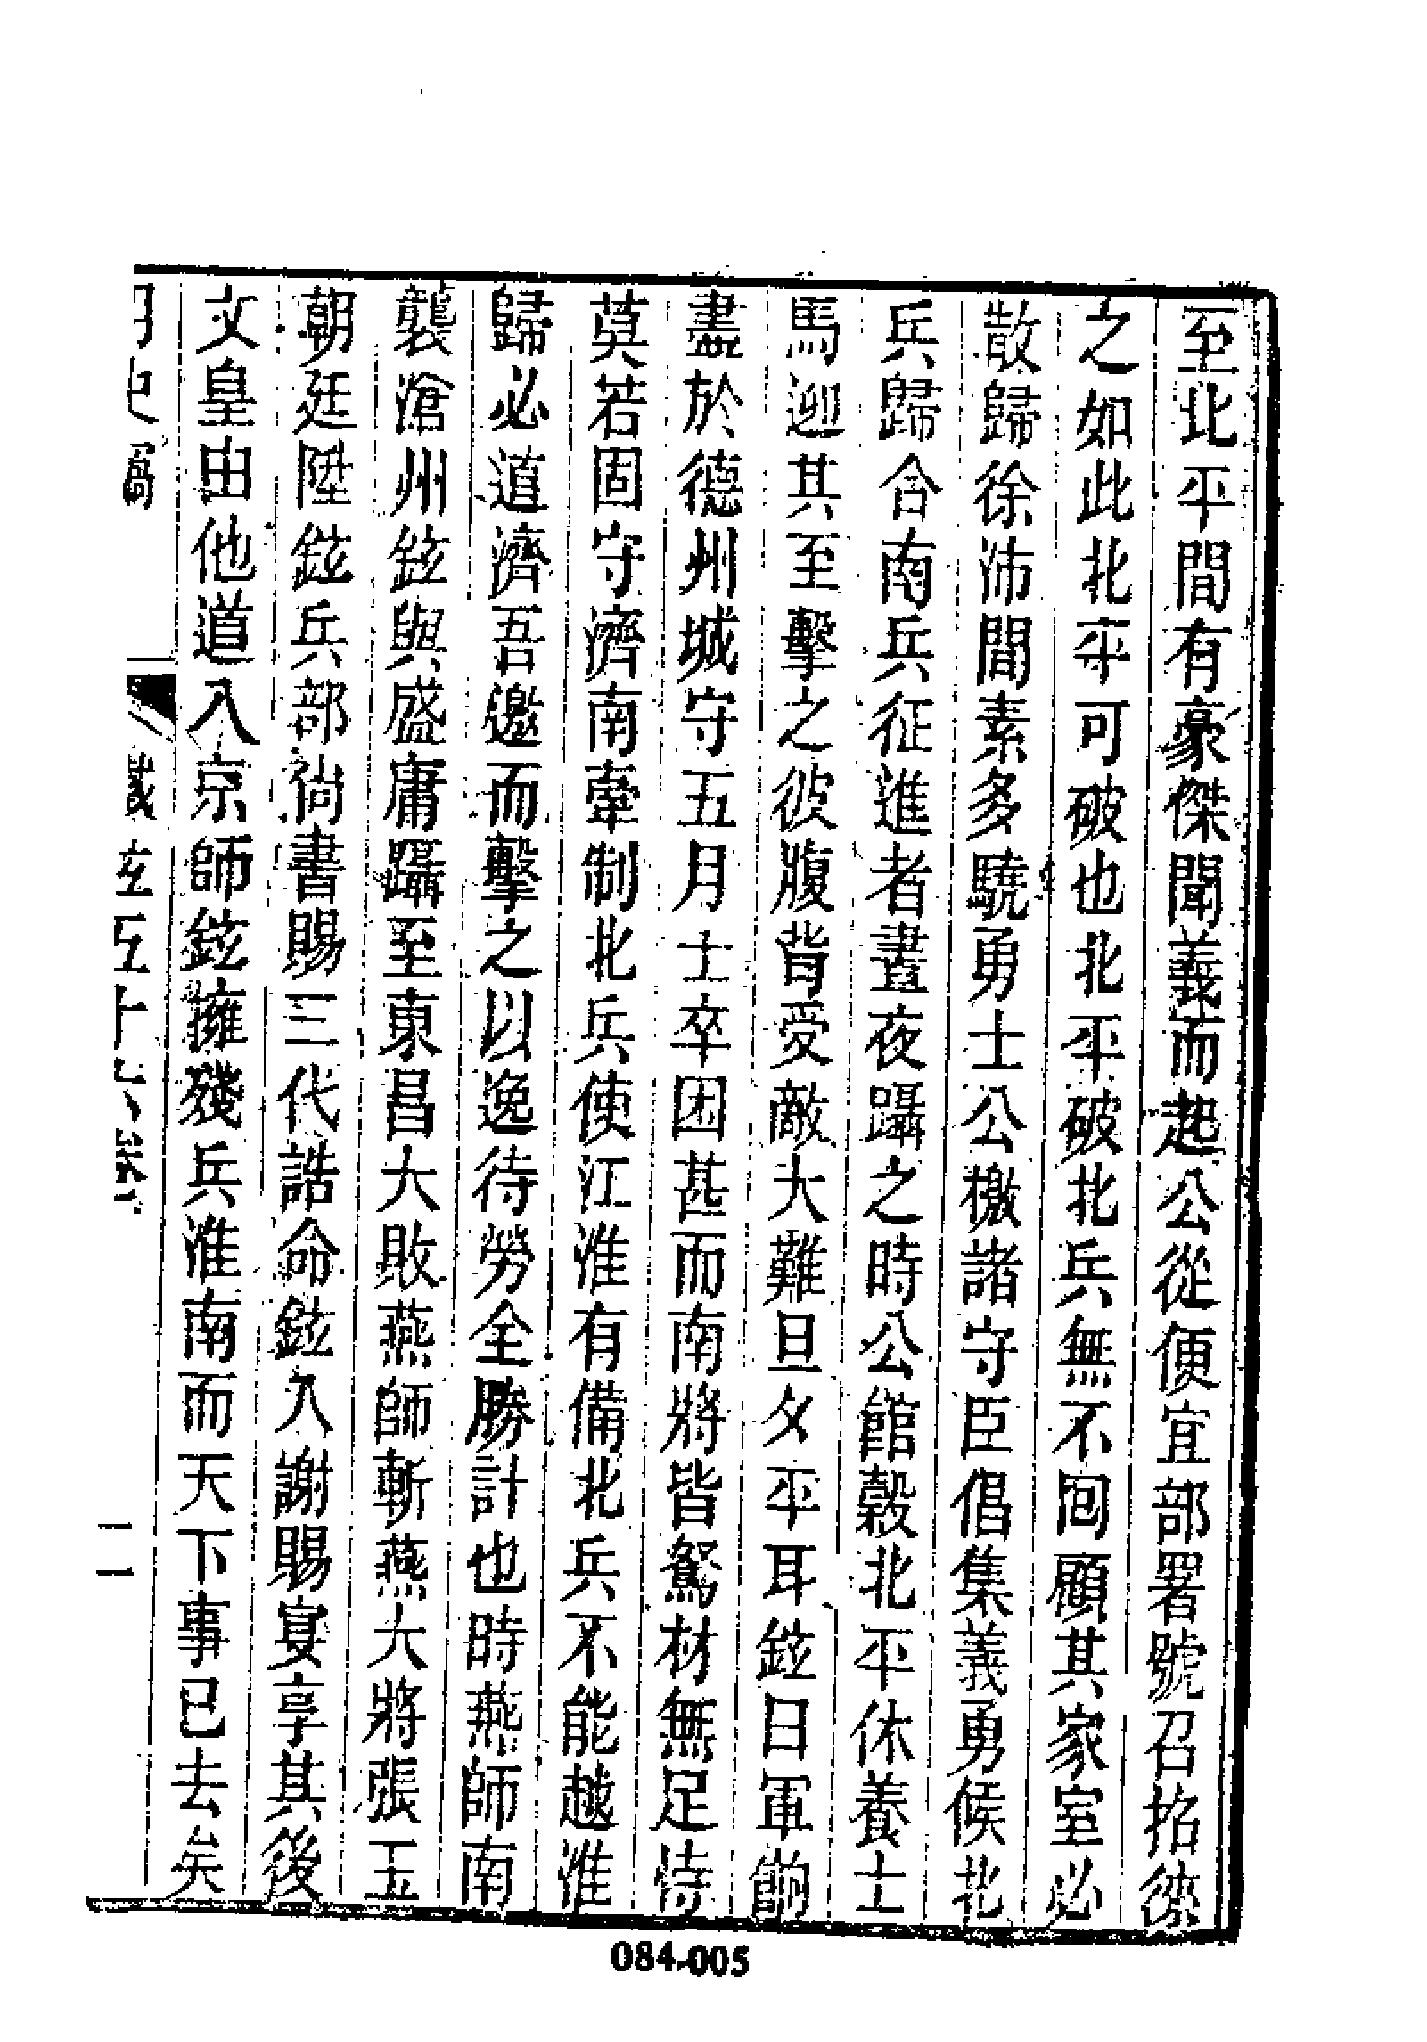 至北平間有豪傑聞義而起公從便宜部署號召招徠
之如此北平可破也北平破北兵無不回顧其家室必
散歸徐沛間素多驍勇士公檄諸守臣倡集義勇候北
兵歸合南兵征進者晝夜躡之時公館榖北平休養士
馬迎其至擊之彼腹背受敵大難旦夕平耳鉉曰軍餉
盡於德州城守五月士卒困甚而南將皆駑材無足恃
莫若固守濟南牽制北兵使江淮有備北兵不能越淮
歸必道濟吾邀而擊之以逸待勞全勝計也時燕師南
襲滄州鉉與盛庸躡至東昌大敗燕師斬燕大將張玉
朝廷陞鉉兵部尚書賜三代誥命鉉入謝賜宴享其後
文皇由他道入京師鉉擁殘兵淮南而天下事已去矣
明史竊
鐵鉉五十六卷
二
084-005